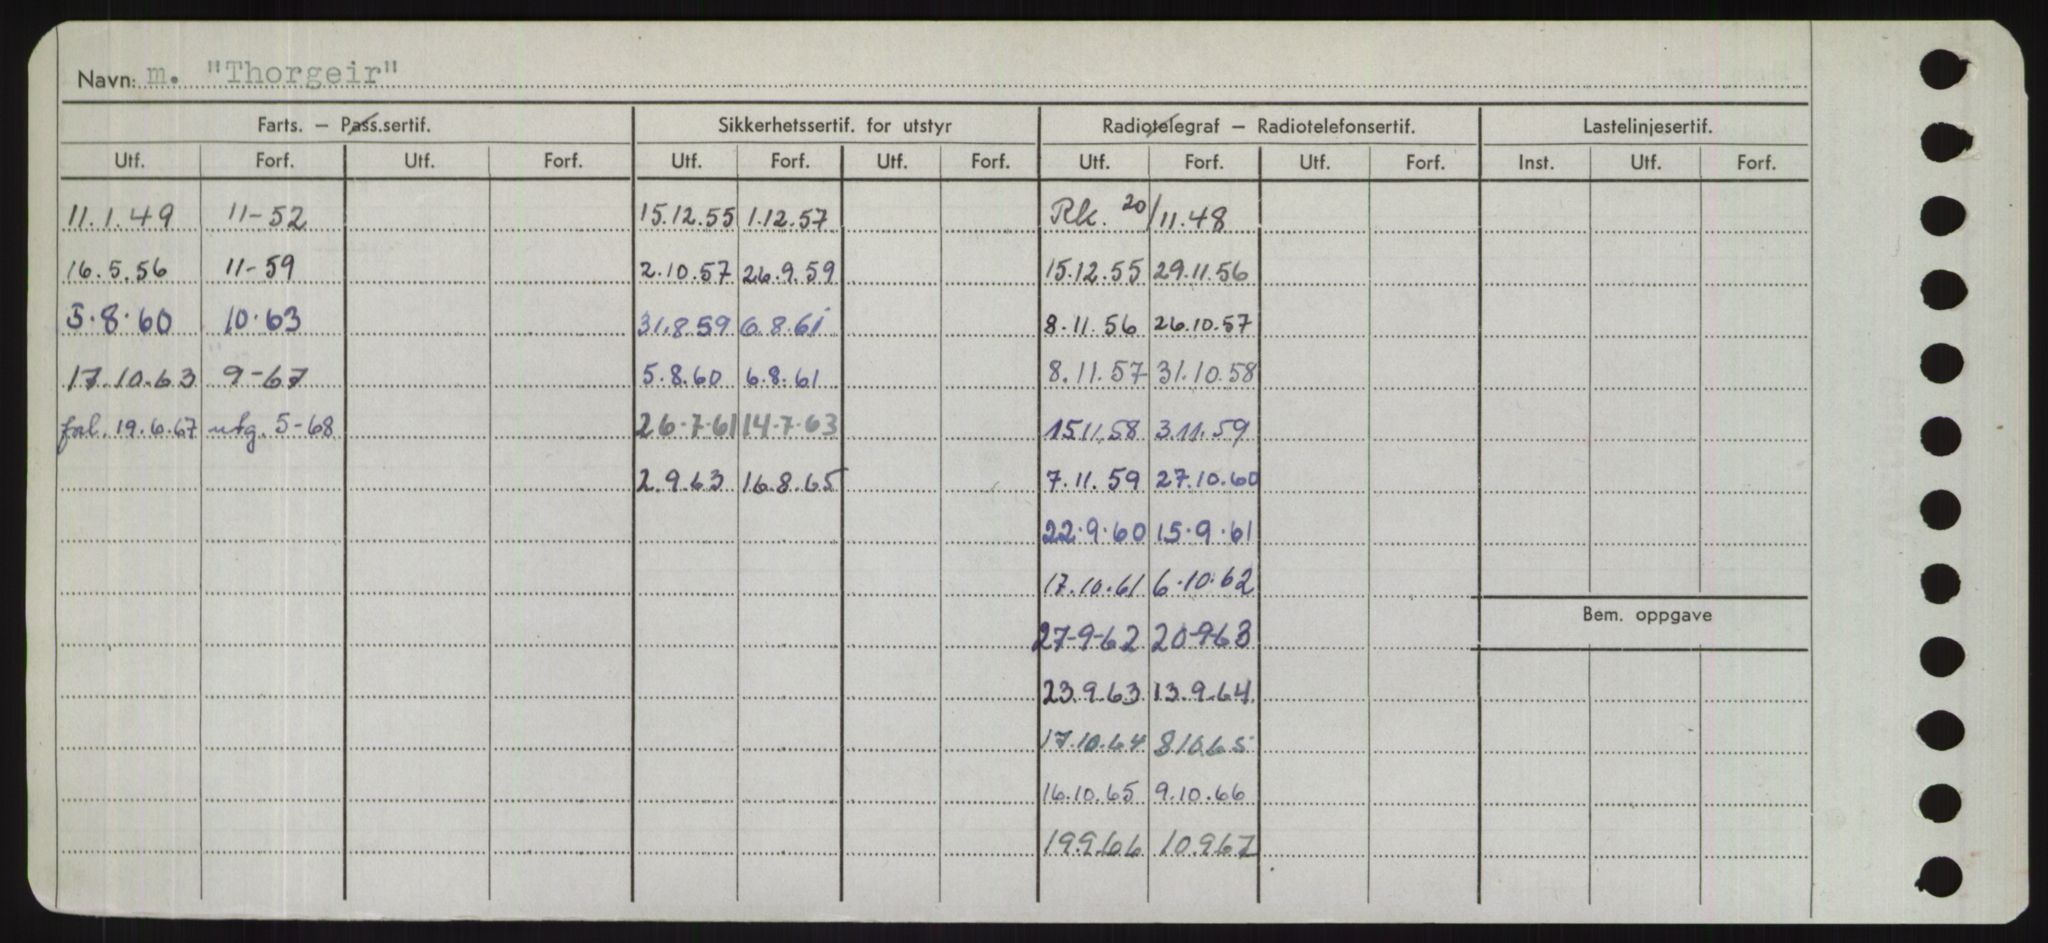 Navn: m. "Thorgeir"
Farts. – Pass.sertif. Sikkerhetssertif. for utstyr Radiotelegraf – Radiotelefonsertif. Lastelinjesertif.
Utf. Forf. Utf. Forf. Utf. Forf. Utf. Forf. Utf. Forf. Utf. Forf. Inst. Utf. Forf.
11.1.49 11-52 15.12.55 1.12.57 Rk. 20/11.48
16.5.56 11-59 2.10.57 26.9.59 15.12.55 29.11.56
5.8.60 10.63 31.8.59 6.8.61 8.11.56 26.10.57
17.10.63 9-67 5.8.60 6.8.61 8.11.57 31.10.58
forl. 19.6.67 utg. 5-68 26-7-61 14-7-63 15.11.58 3.11.59
2.9.63 16.8.65 7.11.59 27.10.60
22.9.60 15.9.61
17.10.61 6.10.62
Bem. oppgave
27-9-62 20-9-63
23.9.63 13.9.64
17.10.64 8.10.65
16.10.65 9.10.66
19.9.66 10.9.67